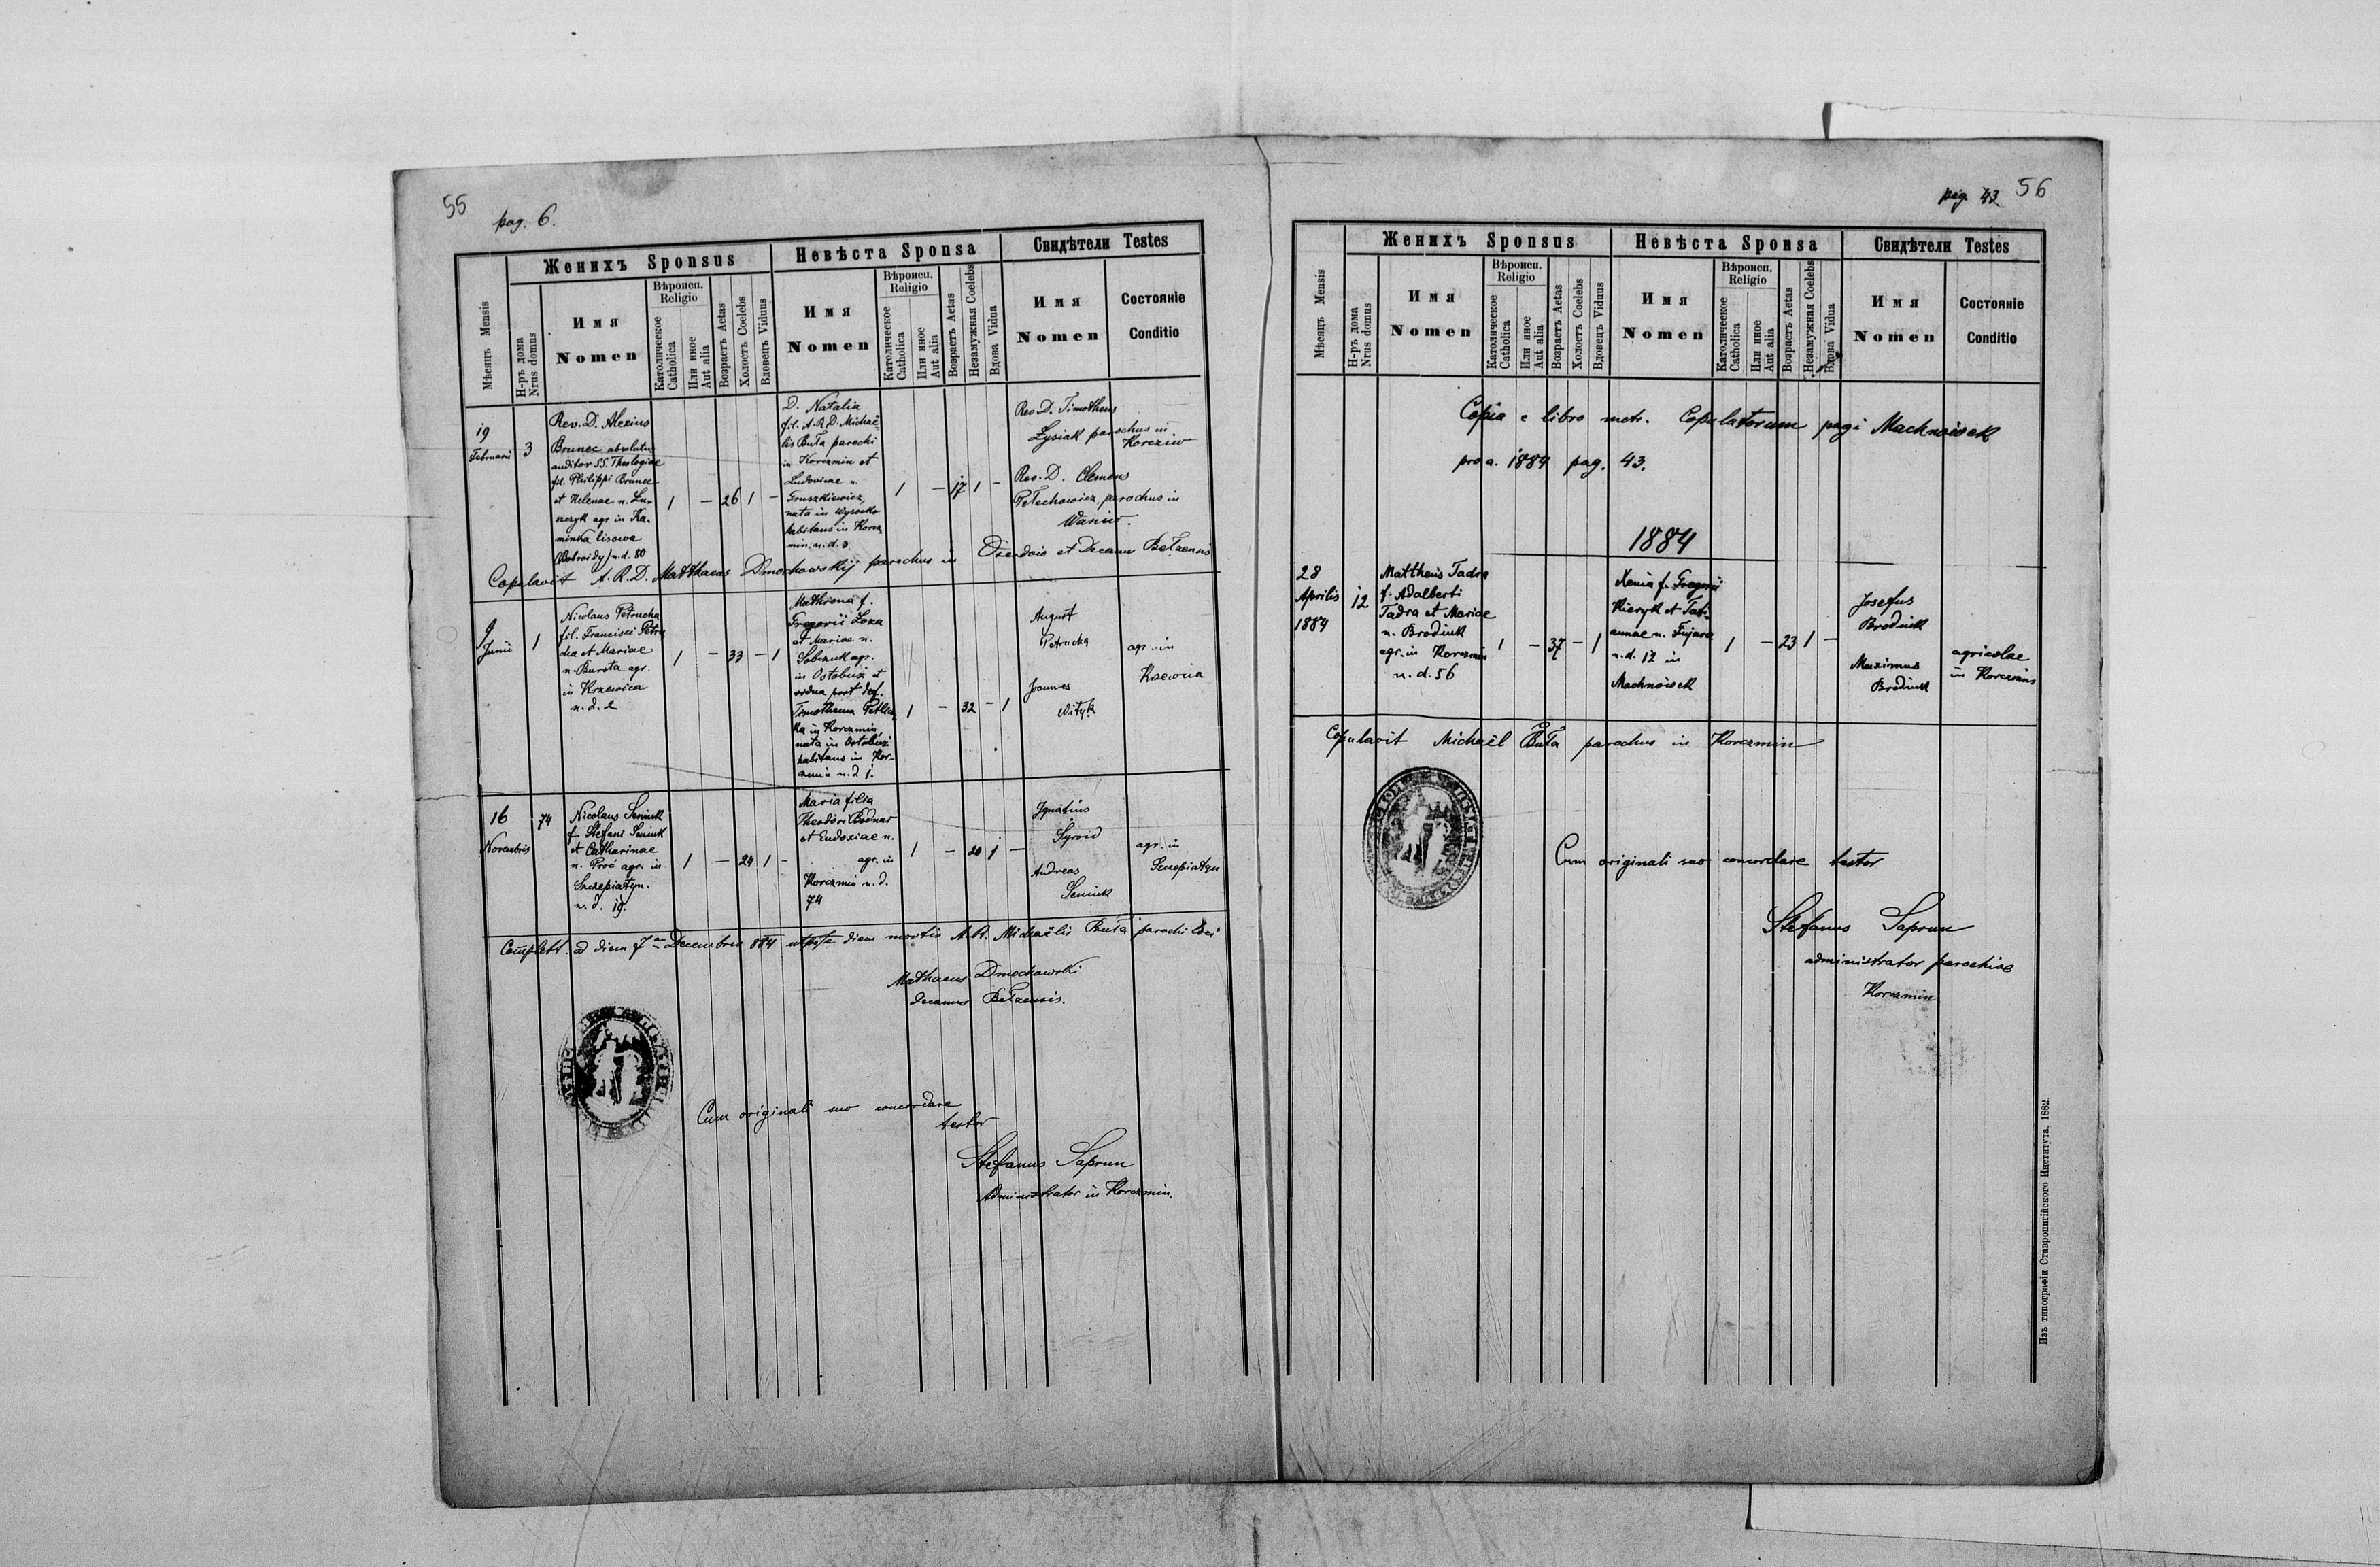 55
pag. 6.
Женихъ Sponsus
Невѣста Sponsa
Свидѣтели Testes
Мѣсяцъ Mensis
Н-ръ дома
Nrus domus
Имя
Nomen
Вѣроисп.
Religio
Католическое
Catholica
Или иное
Aut alia
Возрастъ Aetas
Холостъ Coelebs
Вдовецъ Viduus
Имя
Nomen
Вѣроисп.
Religio
Католическое
Catholica
Или иное
Aut alia
Возрастъ Aetas
Незамужная Coelebs
Вдова Vidua
Имя
Nomen
Состоянiе
Conditio
19
Februarii
3
Rev. D. Alexius
Brunec absolutus
auditor SS. Theologiae
fil. Philippi Brunec
et Helenae n. Lu-
szczyk agr. in Ka-
minka lisowa
(Bobroidy) n. d. 80
1 — 26 1 —
D. Natalia
fil. A. R. D. Michaë-
lis Buła parochi
in Korczmin et
Ludovicae n.
Gruszkiewicz,
nata in Wysocko
habitans in Korcz-
min n. d. 3
1 — 17 1 —
Rev. D. Timotheus
Łysiak parochus in
Korczów
Rev. D. Clemens
Pełechowicz parochus in
Waniów.
Copulavit A. R. D. Matthaeus Dmochowskij parochus in Oserdów et Decanus Bełzensis
9
Junii
1
Nicolaus Petrucha
fil. Francisci Petru
cha et Mariae
n. Bursta agr.
in Krzewica
n. d. 2
1 — 33 — 1
Mathrona f.
Gregorii Łoza
et Mariae n.
Sobczuk agr.
in Ostobuż et
vidua post def.
Timotheum
in Korczmin,
nata in Ostobuż
habitans in Kor-
czmin n. d. 1.
1 — 32 — 1
August
Petrucha
Joannes
Wityk
agr. in
Krzewica
16
Novembris
74
Nicolaus Seniuk
f. Stefani Seniuk
et Catharinae
n. Proć agr. in
Szczepiatyn.
n. d. 19.
1 — 24 1 —
Maria filia
Theodori Bodnar
et Eudoxiae n.
agr. in
Korczmin n. d.
74
1 — 20 1 —
Ignatius
Syroid
Andreas
Seniuk
agr. in
Szczepiatyn
Complett. ad diem 7am Decembris 884 utpote diem mortis A. R. Michaëlis Buła parochi loci
Mathaeus Dmochowski
decanus Bełzensis.
Cum originali suo concordare
testor
Stefanus Saprun
Administrator in Korczmin.
pag. 43
56
Женихъ Sponsus
Невѣста Sponsa
Свидѣтели Testes
Мѣсяцъ Mensis
Н-ръ дома
Nrus domus
Имя
Nomen
Вѣроисп.
Religio
Католическое
Catholica
Или иное
Aut alia
Возрастъ Aetas
Холостъ Coelebs
Вдовецъ Viduus
Имя
Nomen
Вѣроисп.
Religio
Католическое
Catholica
Или иное
Aut alia
Возрастъ Aetas
Незамужная Coelebs
Вдова Vidua
Имя
Nomen
Состоянiе
Conditio
Copia e libro metr. Copulatorum pagi Machnówek
pro a. 1884 pag. 43.
1884
28
Aprilis
1884
12
Mattheus Tadra
f. Adalberti
Tadra et Mariae
n. Brodiuk
agr. in Korczmin
n. d. 56
1 — 37 — 1
Xenia f. Gregorii
Kieryk et Tati-
annae n. Fujara
n. d. 12 in
Machnówek
1 — 23 1 —
Josefus
Brodiuk
Maximus
Brodiuk
agricolae
in Korczmin
Copulavit Michaël Buła parochus in Korczmin
Cum originali suo concordare testor
Stefanus Saprun
administrator parochiae
Korczmin
Изъ типографiи Ставропигiйского Института. 1882.